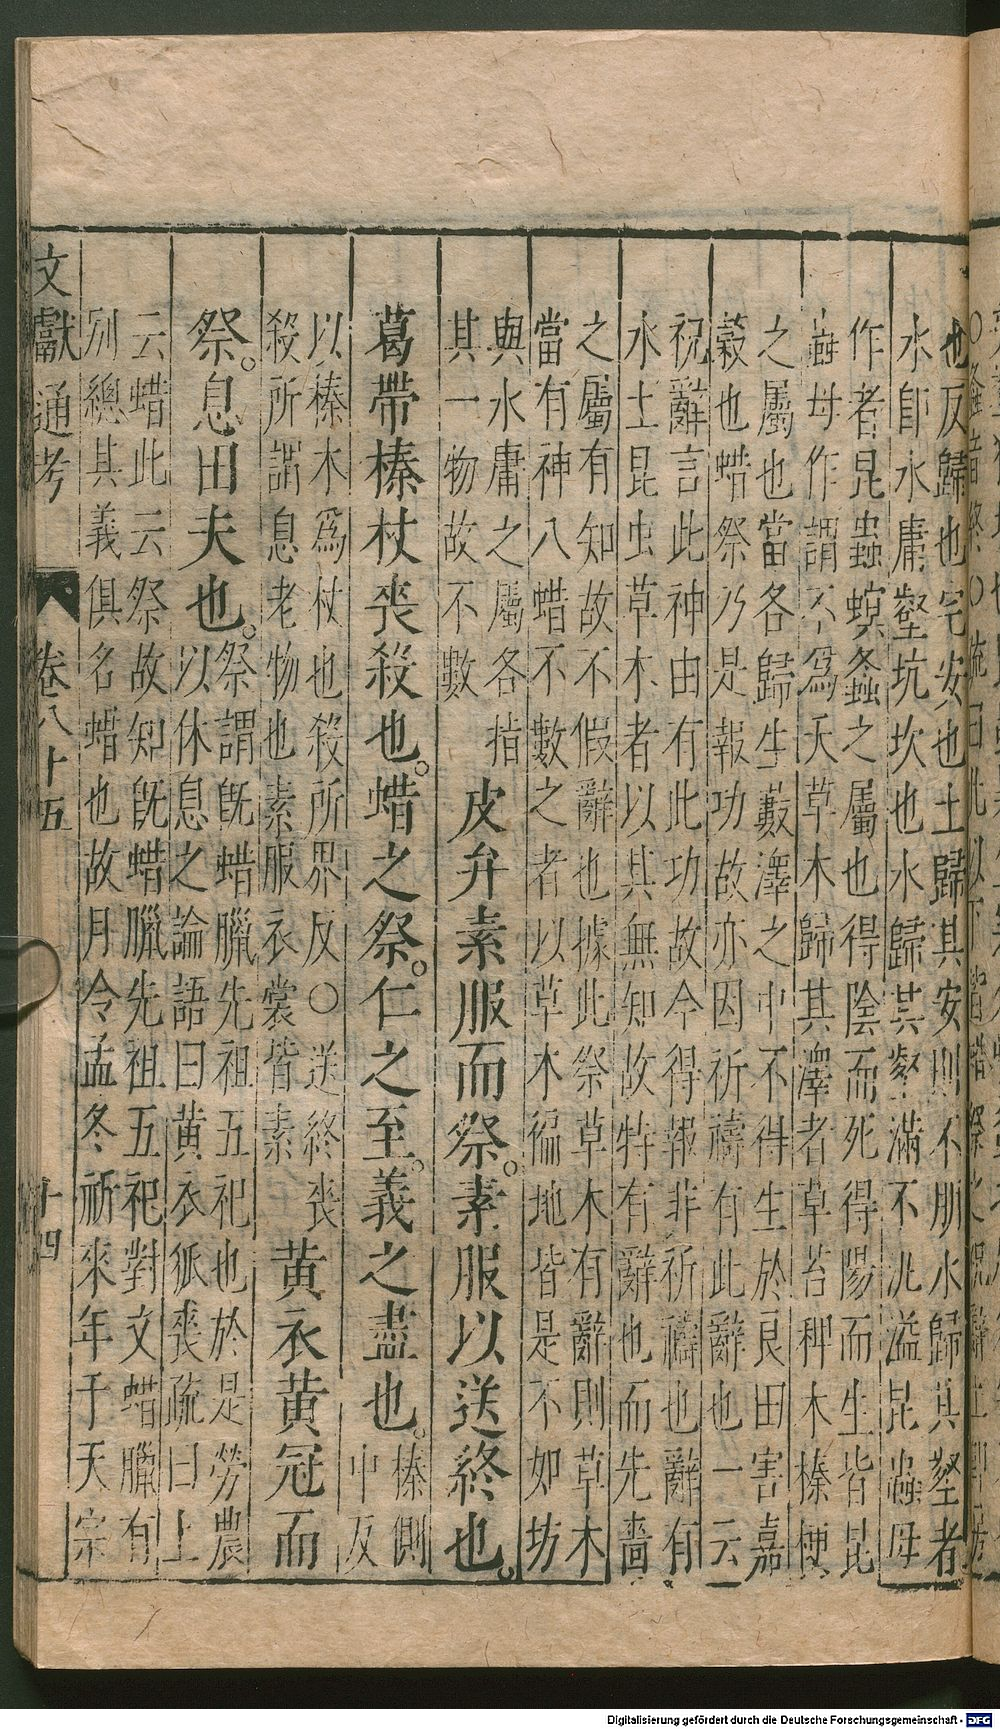 也反歸也宅安也土歸其安則不崩水歸其壑者
水卽水庸壑坑坎也水歸其壑滿不汎溢昆蟲毋
作者昆蟲螟螽之屬也得陰而死得陽而生皆昆
蟲毋作謂不爲夭草木歸其澤者草苔稗木榛梗
之屬也當各歸生藪澤之中不得生於良田害嘉
穀也蜡祭乃是報功故亦因祈禱有此辭也一云
祝辭言此神由有此功故今得報非祈禱也辭有
水土昆虫草木者以其無知故特有辭也而先嗇
之屬有知故不假辭也據此祭草木有辭則草木
當有神八蜡不數之者以草木徧地皆是不如坊
與水庸之屬各指
其一物故不數
皮弁素服而祭。素服以送終也。
葛帶榛杖喪殺也。蜡之祭。仁之至。義之盡也。
榛側
巾反
以榛木爲杖也殺所界反○送終喪
殺所謂息老物也素服衣裳皆素
黃衣黃冠而
祭。息田夫也。
祭謂旣蜡臘先祖五祀也於是勞農
以休息之論語曰黃衣狐裘疏曰上
云蜡此云祭故知旣蜡臘先祖五祀對文蜡臘有
別總其義俱名蜡也故月令孟冬祈來年于天宗
文獻通考 卷八十五 十四
Digitalisierung gefördert durch die Deutsche Forschungsgemeinschaft - DFG